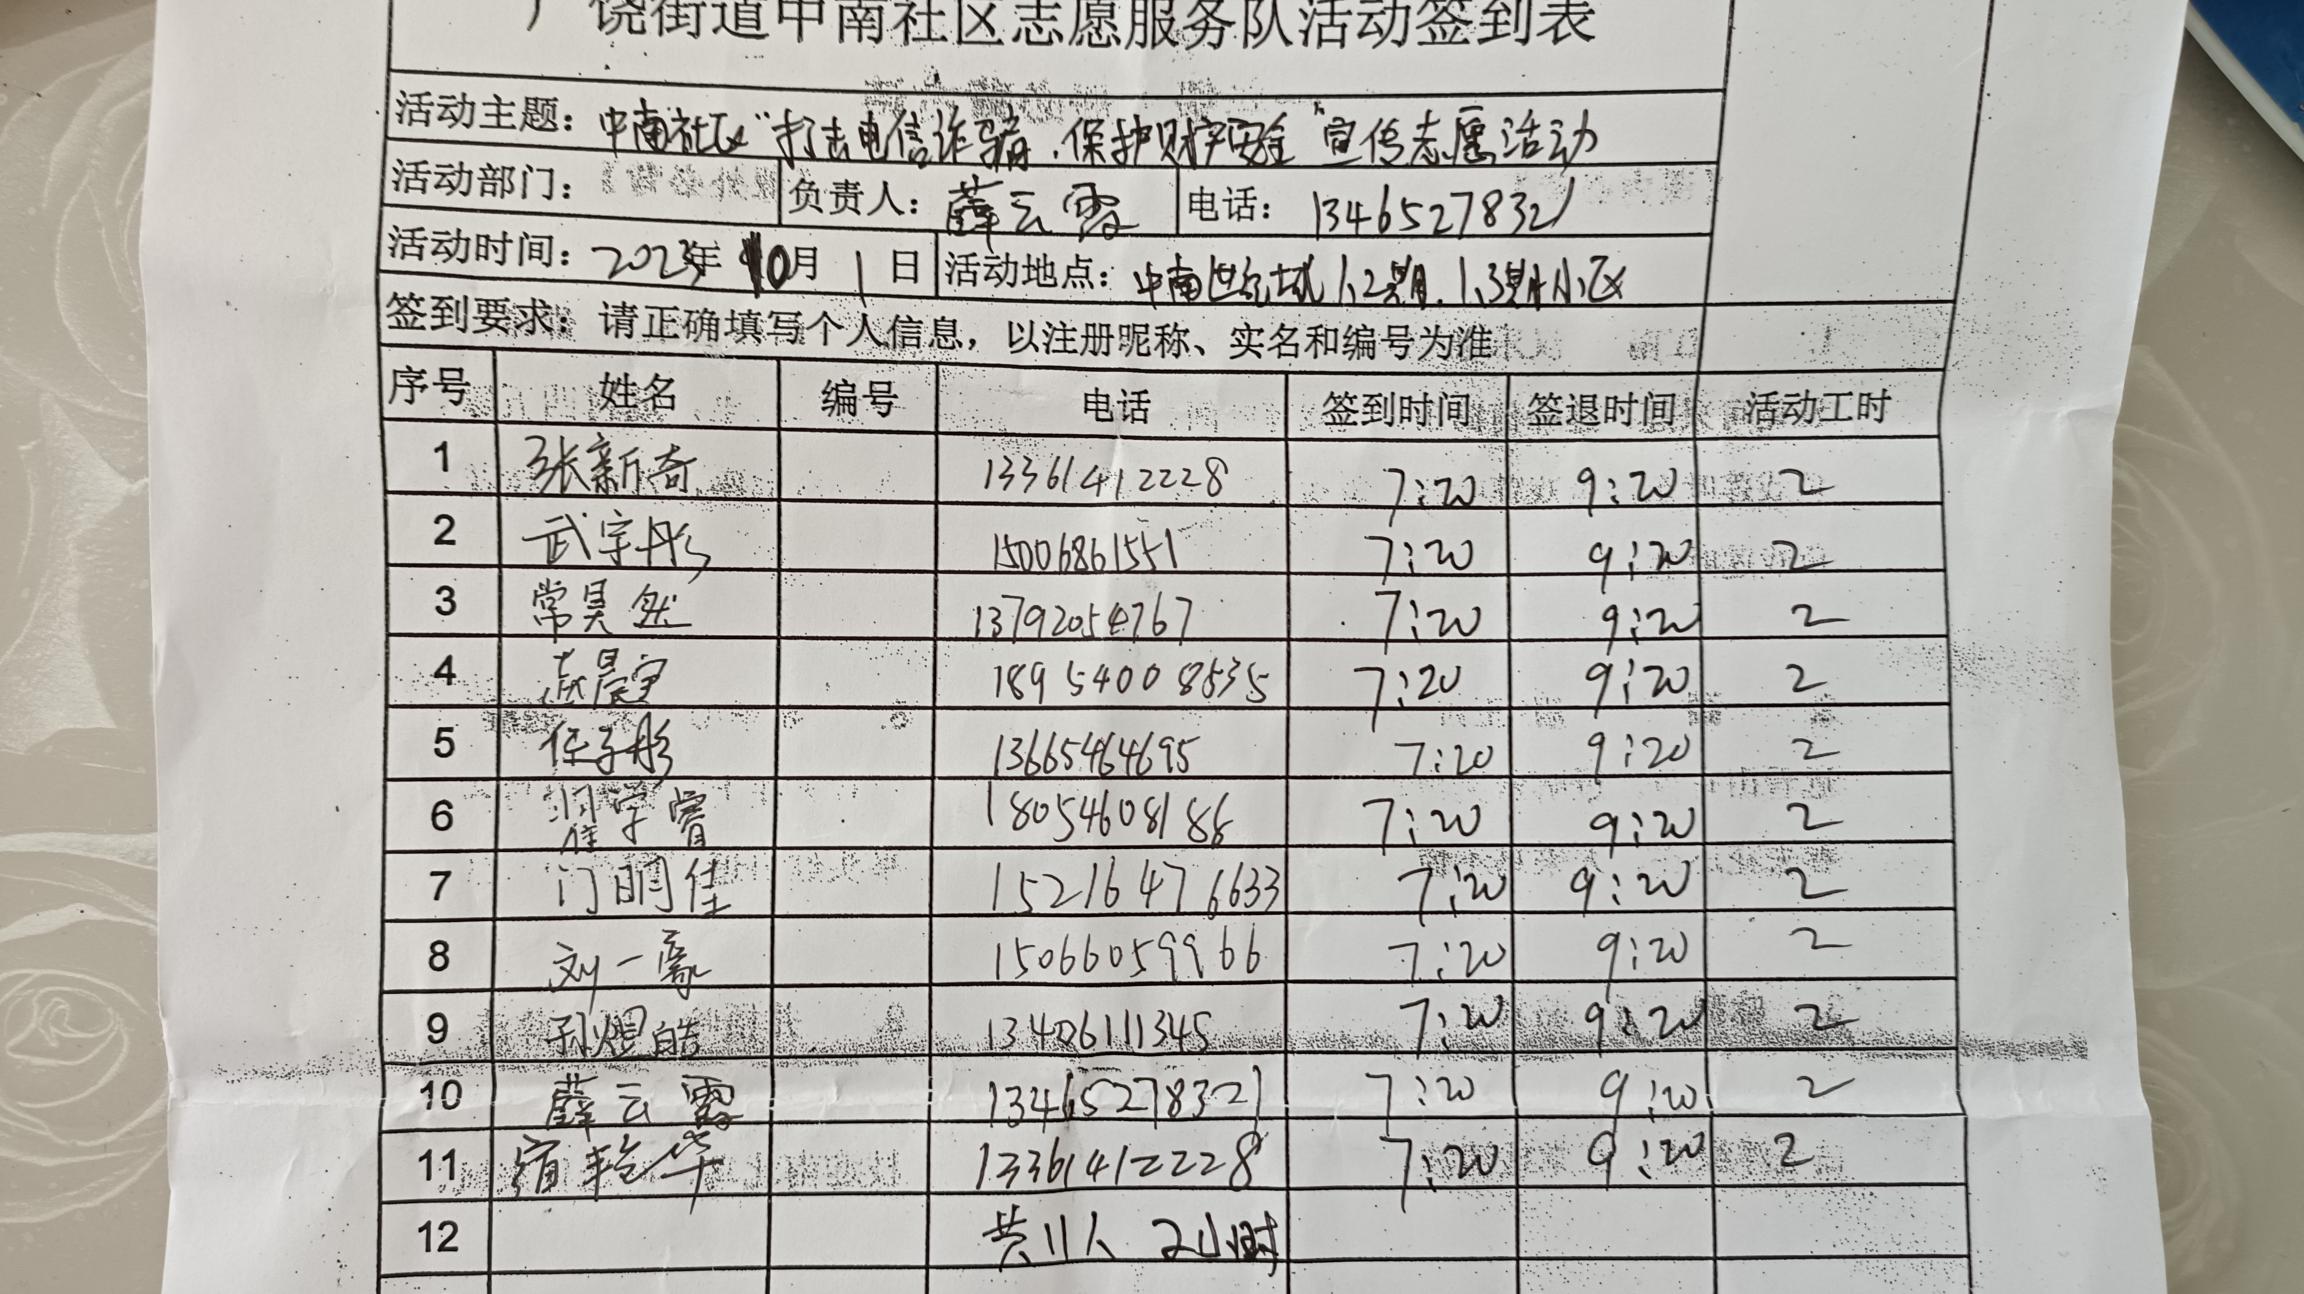 广饶街道中南社区志愿服务队活动签到表
活动主题：中南社区"打击电信诈骗、保护财产安全"宣传志愿活动
活动部门： 负责人：薛云霞 电话：13465278321
活动时间：2023年10月1日 活动地点：中南世纪城1.2期、1.3期小区
签到要求：请正确填写个人信息，以注册昵称、实名和编号为准
序号 姓名 编号 电话 签到时间 签退时间 活动工时
1 张新奇 13361412228 7:20 9:20 2
2 武宇彤 15006861551 7:20 9:20 2
3 常昊然 13792054767 7:20 9:20 2
4 18954008535 7:20 9:20 2
5 任子彤 13665464695 7:20 9:20 2
6 18054608186 7:20 9:20 2
7 门明佳 15216476633 7:20 9:20 2
8 刘一豪 15066059966 7:20 9:20 2
9 孙煜皓 13406111345 7:20 9:20 2
10 薛云霞 13465278321 7:20 9:20 2
11 宿艳华 13361412228 7:20 9:20 2
12 共11人 2小时